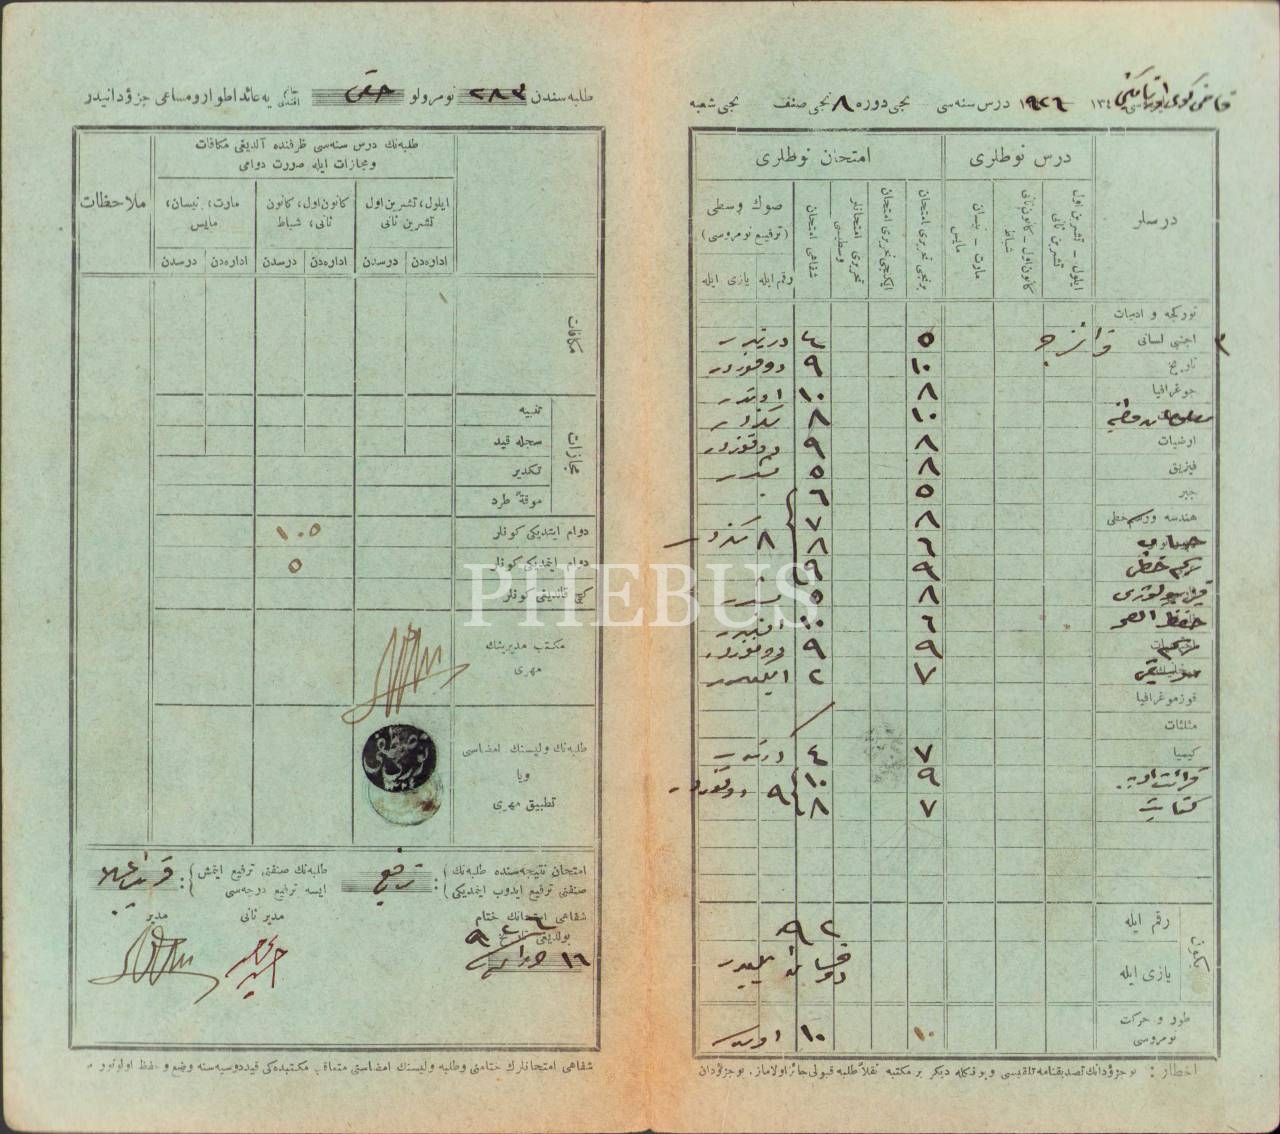 قاضی کوی اورتا مکتبی ١٣٤ ١٩٢٦ درس سنه سی نجی دوره ٨ نجی صنف نجی شعبه
درسلر
درس نوطلری
امتحان نوطلری
ایلول ـ تشرین اول تشرین ثانی
کانون اول ـ کانون ثانی شباط
مارت ـ نیسان مایس
برنجی تحریری امتحان
ایکنجی تحریری امتحان
تحریری امتحانلر وسطیسی
شفاهی امتحان
صوك وسطی
(ترفیع نومروسی)
رقم ایله یازی ایله
تورکجه و ادبیات
اجنبی لسانی فرانسزجه ٥ ٤ درتدر
تاریخ ١٠ ٩ دوقوزدر
جوغرافیا ٨ ١٠ اوندر
معلومات وطنیه ١٠ ٨ سکزدر
ارضیات ٨ ٩ دوقوزدر
فیزیق ٨ ٥ بشدر
جبر ٥ ٦
هندسه و رسم خطی ٨ ٧
حساب ٦ ٨ ٨ سکزدر
رسم خطی ٩ ٩
فیزیولوژی ٨ ٥ بشدر
حفظ الصحه ٦ ١٠ اوندر
رسم ٩ ٩ دوقوزدر
موسیقی ٧ ٢ ایکیدر
قوزموغرافیا
مثلثات
کیمیا ٧ ٤ درتدر
قرائت ادبیه ٩ ١٠ ٩ دوقوزدر
کتابت ٧ ٨
یکون
رقم ایله ٩٢
یازی ایله دوقسان ایکیدر
طور و حرکت نومروسی ١٠ ١٠ اوندر
اخطار : بو جزؤدانك تصدیقنامه تلقیسی و بو شکله دیکر بر مکتبه نقلاً طلبه قبولی جائز اولاماز. بو جزؤدان
طلبه سندن ٢٨٣ نومرولو حقی افندی یه عائد اطوار و مساعی جزؤدانیدر
طلبه نك درس سنه سی ظرفنده آلدیغی مکافات
و مجازات ایله صورت دوامی
ملاحظات
ایلول، تشرین اول تشرین ثانی
کانون اول، کانون ثانی، شباط
مارت، نیسان، مایس
اداره دن درسدن اداره دن درسدن اداره دن درسدن
مکافات
مجازات
تنبیه
سجله قید
تکدیر
موقة طرد
دوام ایتدیکی کونلر ١٠٥
دوام ایتمدیکی کونلر ٥
کچ قالدیغی کونلر
مکتب مدیرینك
مهری
طلبه نك ولیسنك امضاسی
ویا
تطبیق مهری
امتحان نتیجه سنده طلبه نك
صنفنی ترفیع ایدوب ایتمدیکی : ترفیع
طلبه نك صنفنی ترفیع ایتمش
ایسه ترفیع درجه سی : قریب اعلا
شفاهی امتحانك ختام
بولدیغی تاریخ
١٦ حزیران ٩٢٦
مدیر ثانی
مدیر
شفاهی امتحانلرك ختامنی و طلبه ولیسنك امضاسنی متعاقب مکتبده کی قید دوسیه سنه وضع و حفظ اولونور
PHEBUS